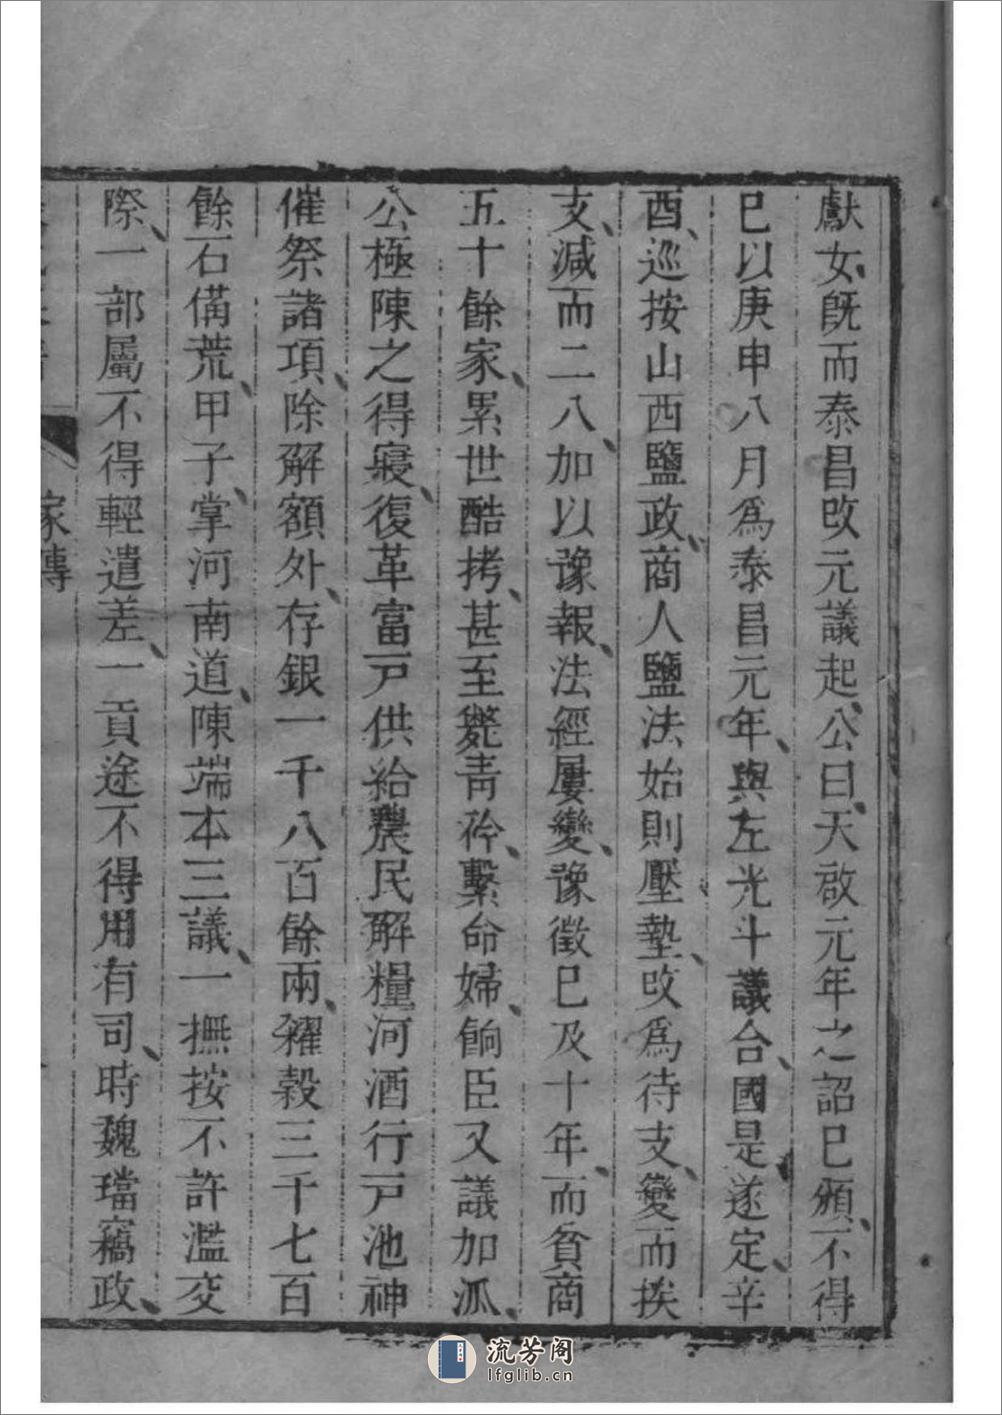 獻女旣而泰昌改元議起公曰天啟元年之詔巳頒不得
巳以庚申八月爲泰昌元年與左光斗議合國是遂定辛
酉巡按山西鹽政商人鹽法始則壓墊改爲待支變而挨
支減而二八加以豫報法經屢變豫徵巳及十年而貧商
五十餘家累世酷拷甚至斃靑衿繫命婦餉臣又議加派
公極陳之得寢復革富戸供給農民解糧河酒行戸池神
催祭諸項除解額外存銀一千八百餘兩糴榖三千七百
餘石備荒甲子掌河南道陳端本三議一撫按不許濫交
際一部屬不得輕遣差一貢途不得用有司時魏璫竊政
家傳
流芳阁
lfglib.cn